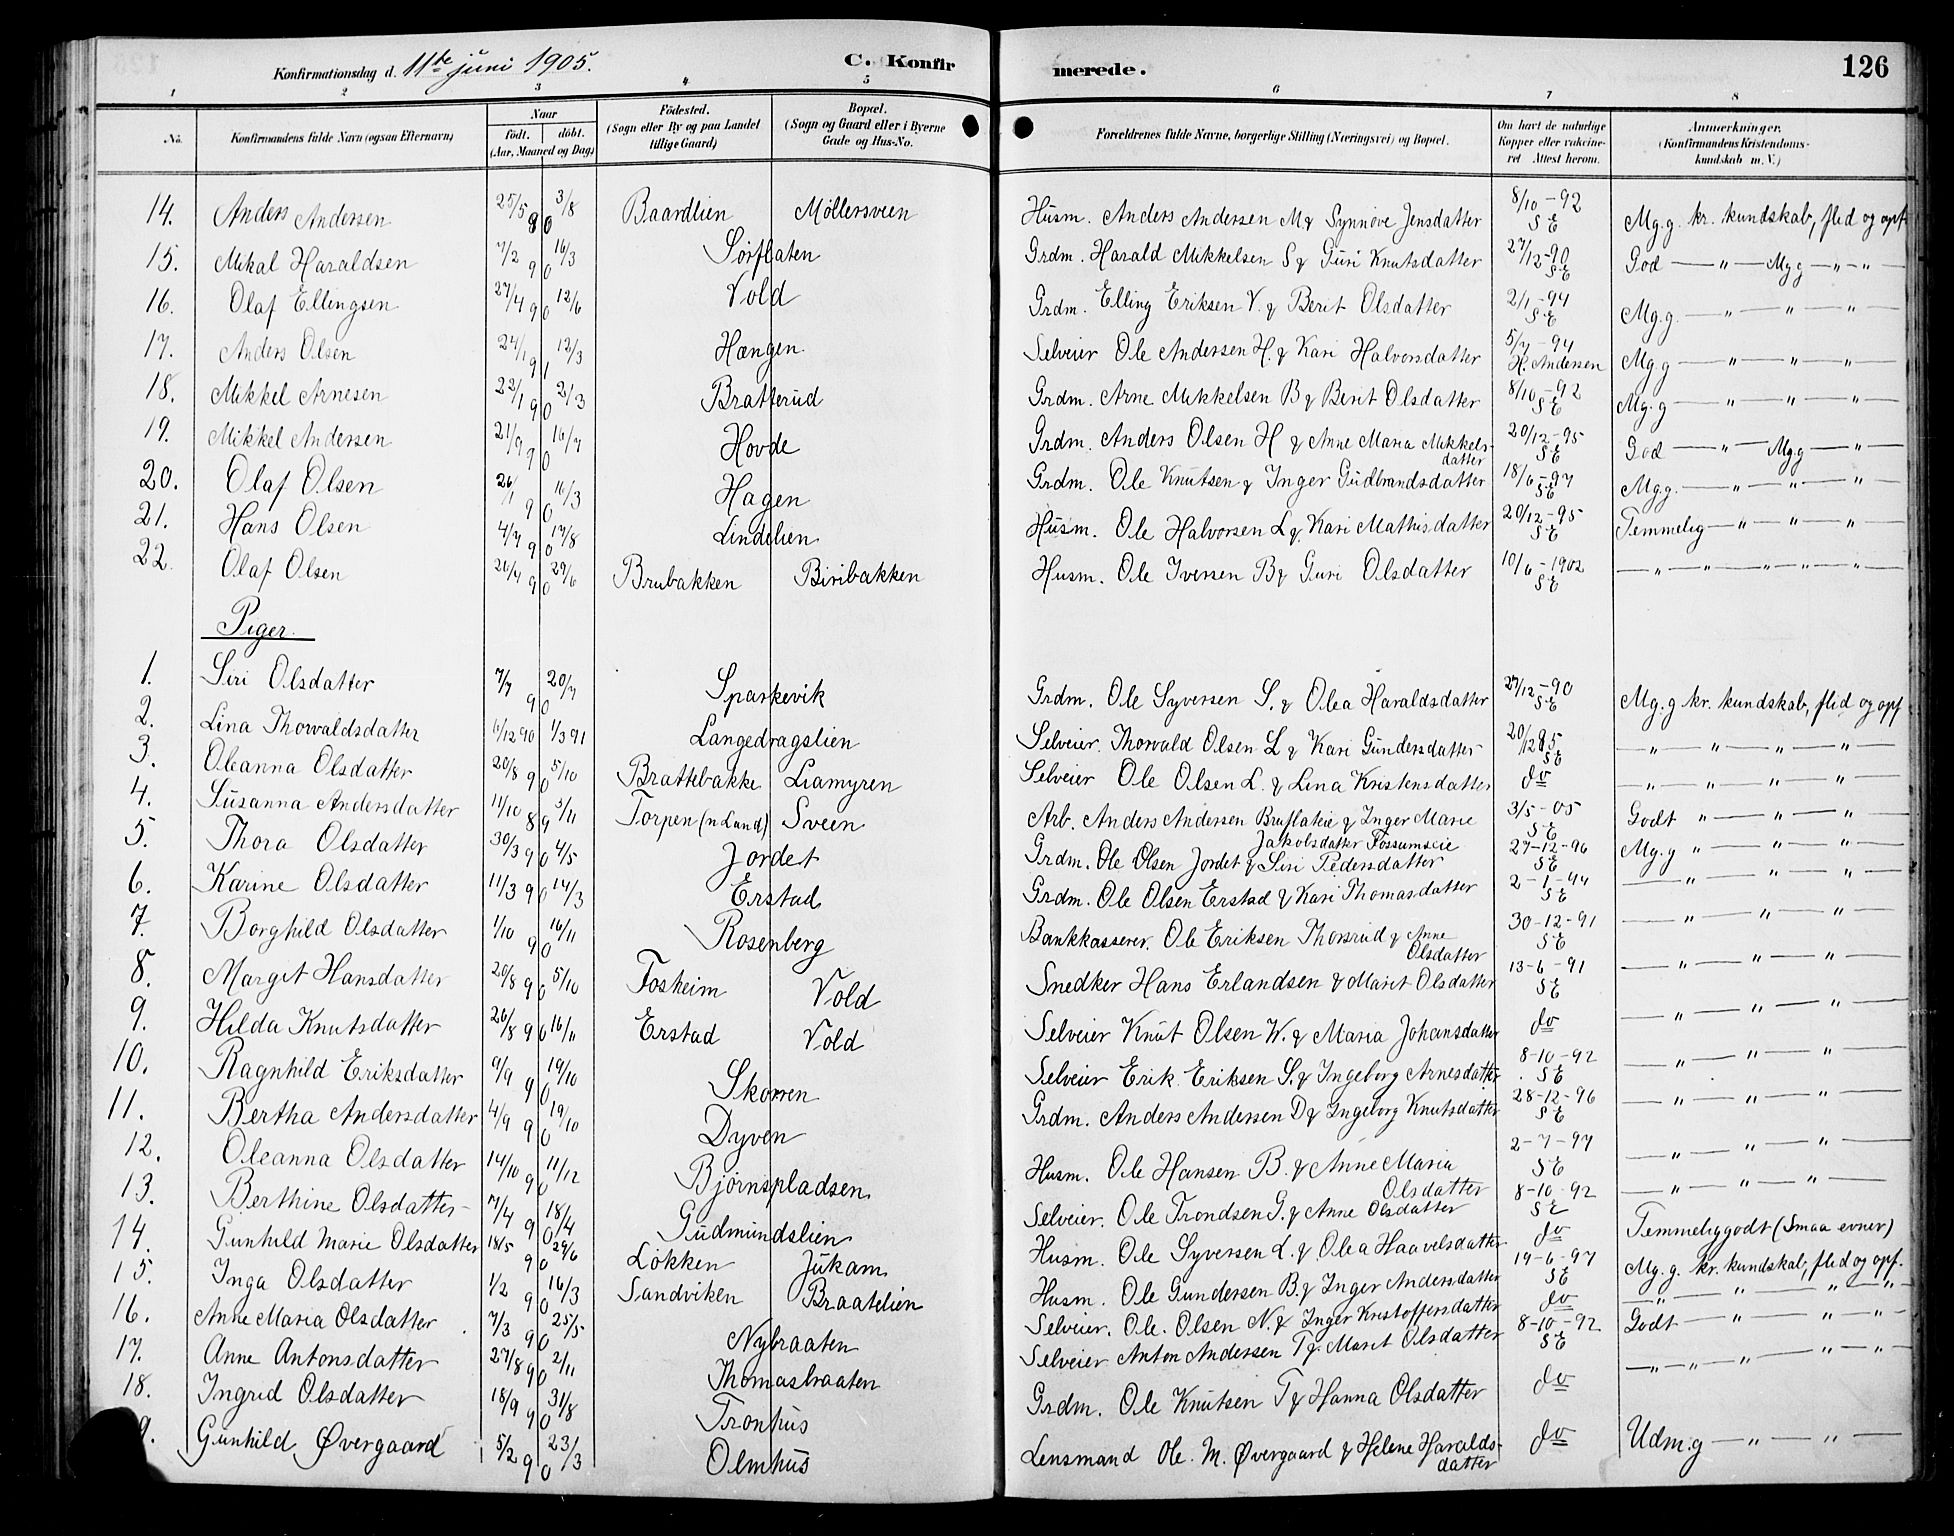 Konfirmationsdag d. 11te juni 1905. C. Konfirmerede. 126
1 2 3 4 5 6 7 8
No. Konfirmandens fulde Navn (ogsaa Efternavn) Naar födt. döbt. (Aar, Maaned og Dag) Födested. (Sogn eller By og paa Landet tillige Gaard) Bopæl. (Sogn og Gaard eller i Byerne Gade og Hus-No. Forældrenes fulde Navne, borgerlige Stilling (Næringsvei) og Bopæl. Om havt de naturlige Kopper eller vakcineret Attest herom. Anmærkninger. (Konfirmandens Kristendomskundskab m. V.)
14. Anders Andersen 25/5 3/8 80 Baardlien Möllersveen Husm. Anders Andersen M. & Synnöve Jensdatter 8/10-92 SE Mg.g. kr. kundskab, flid og opf.
15. Mikal Haraldsen 7/2 16/3 90 Sørflaten Grdm. Harald Mikkelsen S & Guri Knutsdatter 27/12-90 SE God — " — Mgg — " — " —
16. Olaf Ellingsen 27/4 12/6 90 Vold Grdm. Elling Eriksen V. & Berit Olsdatter 2/1-94 SE Mg.g. — " — " — " —
17. Anders Olsen 24/1 12/3 91 Hængen Selveier Ole Andersen H. & Kari Halvorsdatter 5/7-94 H. Andersen Mg.g — " — " — " —
18. Mikkel Arnesen 22/1 2/3 90 Bratterud Grdm. Arne Mikkelsen B & Berit Olsdatter 8/10-92 SE Mg.g — " — " — " —
19. Mikkel Andersen 21/9 16/7 90 Hovde Grdm. Anders Olsen H & Anne Maria Mikkelsdatter 20/12-95 SE God — " — Mgg — " —
20. Olaf Olsen 26/1 16/3 90 Hagen Grdm. Ole Knutsen & Inger Gudbrandsdatter 18/6-97 SE Mg.g. — " — " — " —
21. Hans Olsen 4/7 17/8 90 Lindelien Husm. Ole Halvorsen L & Kari Mathisdatter 20/12-95 SE Temmelig — " — " — " —
22. Olaf Olsen 26/4 29/6 90 Brubakken Biribakken Husm. Ole Iversen B & Guri Olsdatter 10/6-1902 SE — " — " — " — " —
Piger.
1. Siri Olsdatter 7/7 20/7 90 Sparkevik Grdm. Ole Syversen S. & Olea Haraldsdatter 27/12-90 SE Mg.g kr. kundskab, flid og opf
2. Lina Thorvaldsdatter 6/12 90 1/3 91 Langedragslien Selveier. Thorvald Olsen L & Kari Gundersdatter 20/12 95 SE — " — " — " — " —
3. Oleanna Olsdatter 20/8 5/10 90 Brattebakke Liamyren Selveier Ole Olsen L. & Lina Kristensdatter do — " — " — " — " —
4. Susanna Andersdatter 11/10 3/11 89 Torpen (n Land) Sveen Arb. Anders Andersen Bruflateie & Inger Marie Jakobsdatter Fossumseie 3/5-05 SE Godt " — " — " —
5. Thora Olsdatter 30/3 4/5 90 Jordet Grdm. Ole Olsen Jordet & Siri Pedersdatter 27-12-96 SE Mg.g " — " — " —
6. Karine Olsdatter 11/3 14/3 90 Erstad Grdm. Ole Olsen Erstad & Kari Thomasdatter 2-1-94 SE — " — " — " —
7. Borghild Olsdatter 1/10 16/11 90 Rosenberg Bankkasserer. Ole Eriksen Thorsrud & Anne Olsdatter 30-12-91 SE — " — " — " —
8. Margit Hansdatter 20/8 5/10 90 Fosheim Vold Snedker Hans Erlandsen & Marit Olsdatter 13-6-91 SE — " — " — " —
9. Hilda Knutsdatter 26/8 16/11 90 Erstad Vold Selveier Knut Olsen W. & Maria Johansdatter do — " — " — " —
10. Ragnhild Eriksdatter 9/9 19/10 90 Skorren Selveier Erik Eriksen S. & Ingeborg Arnesdatter 8-10-92 SE — " — " — " —
11. Bertha Andersdatter 4/9 19/10 90 Dyven Grdm. Anders Andersen D & Ingeborg Knutsdatter 28-12-96 SE — " — " — " —
12. Oleanna Olsdatter 14/10 11/12 90 Bjørnspladsen Husm. Ole Hansen B. & Anne Maria Olsdatter 2-7-97 SE — " — " — " —
13. Berthine Olsdatter 7/4 18/4 90 Gudmundslien Selveier. Ole Trondsen G. & Anne Olsdatter 8-10-92 SE — " — " — " —
14. Gunhild Marie Olsdatter 18/5 29/6 90 Løkken Jukam Husm. Ole Syversen L. & Olea Haavelsdatter do Temmeliggodt (Smaa evner)
15. Inga Olsdatter 1/2 16/3 90 Sandviken Braatelien Husm. Ole Gundersen B. & Inger Andersdatter 19-6-97 SE Mg.g. kr. kundskab, flid og opf.
16. Anne Maria Olsdatter 7/3 25/5 90 Nybraaten Selveier. Ole Olsen N. & Inger Kristoffersdatter do — " — " — " — " —
17. Anne Antonsdatter 27/8 2/11 90 Thomasbraaten Selveier Anton Andersen T & Marit Olsdatter 8-10-92 SE Godt — " — " — " —
18. Ingrid Olsdatter 18/9 31/8 90 Tronhus Grdm. Ole Knutsen T & Hanna Olsdatter do — " — " — " — " —
9. Gunhild Øvergaard 5/2 23/3 90 Olmhus Lensmand Ole. M. Øvergaard & Helene Haraldsdatter do Udm.g — " — " —